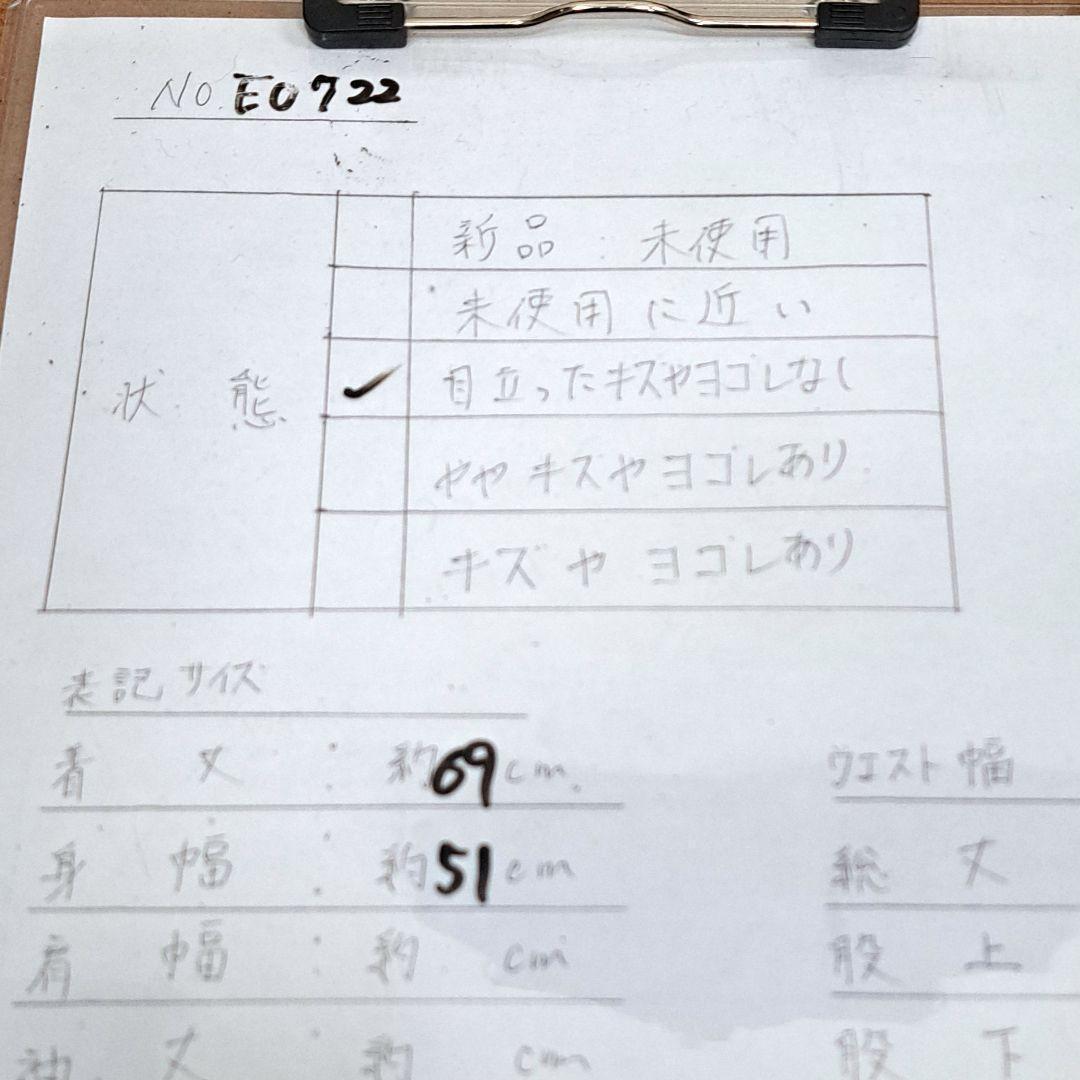 NO. E0722
状態
新品.未使用
未使用に近い
✓ 目立ったキズやヨゴレなし
ややキズやヨゴレあり
キズやヨゴレあり
表記サイズ
着丈:約69cm
ウエスト幅
身幅:約51cm
総丈
肩幅:約 cm
股上
袖丈 約 cm
股下